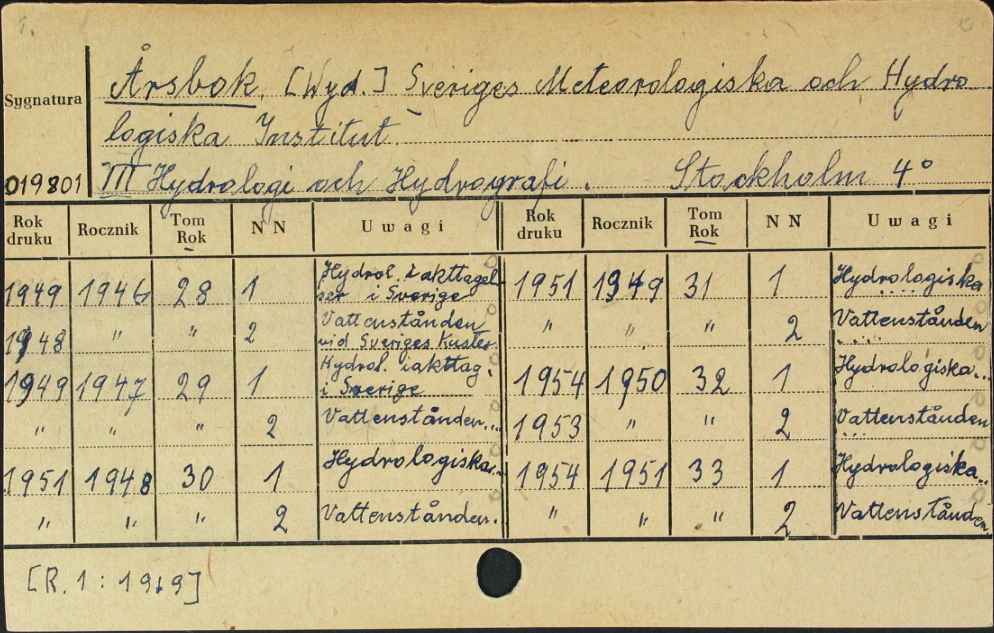 1.
Årsbok. [Wyd.] Sveriges Meteorologiska och Hydro
Sygnatura
logiska Institut.
019801 III Hydrologi och Hydrografi. Stockholm 4°
Rok druku Rocznik Tom Rok NN Uwagi Rok druku Rocznik Tom Rok NN Uwagi
1949 1946 28 1 Hydrol. iakttagel
ser i Sverige 1951 1949 31 1 Hydrologiska
1948 " " 2 Vattenstånden
vid Sveriges Kuster. " " " 2 Vattenstånden
1949 1947 29 1 Hydrol. iakttag.
i Sverige 1954 1950 32 1 Hydrologiska...
" " " 2 Vattenstånden... 1953 " " 2 Vattenstånden
1951 1948 30 1 Hydrologiska... 1954 1951 33 1 Hydrologiska..
" " " 2 Vattenstånden. " " " 2 Vattenstånden.
[R. 1 : 1919]